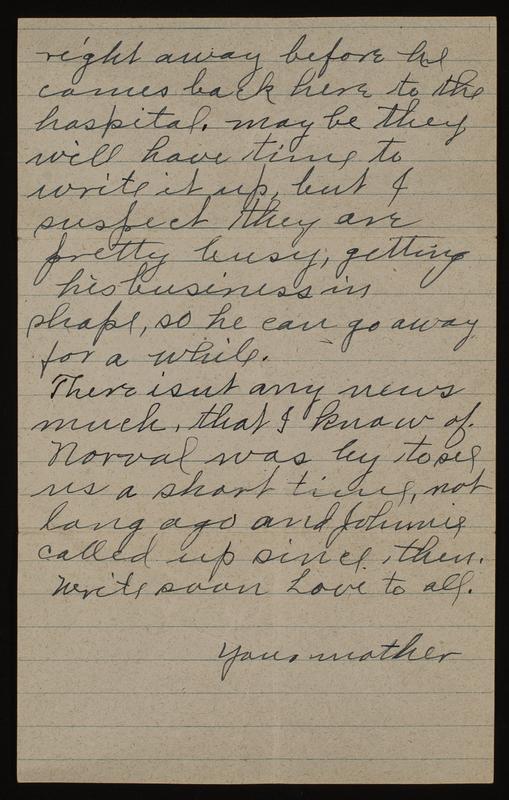 right away before he
comes back here to the
hospital. may be they
will have time to
write it up, but I
suspect they are
pretty busy, getting
his business in
shape, so he can go away
for a while.
There isnt any news
much, that I know of.
Norval was by to see
us a short time, not
long ago and Johnnie
called up since, then.
Write soon Love to all.
Your mother